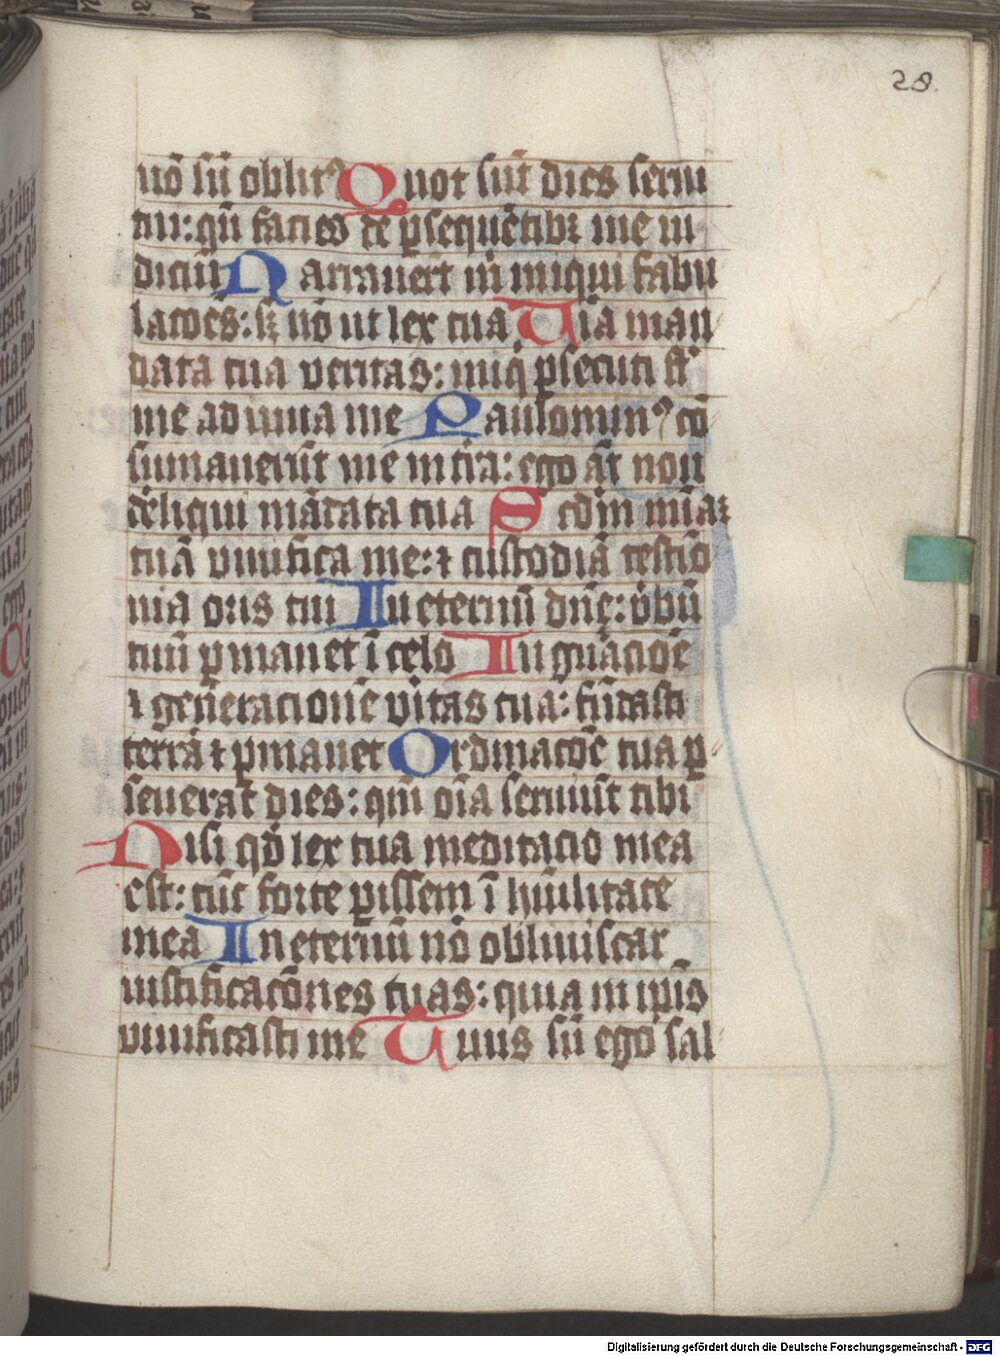 28.
nō sū oblitꝰ Quot sūt dies serui
tui: qn̄ facies de ꝑsequētibꝫ me iu
diciū Narrauer̄t m̄ iniqui fabu
lacōes: sꝫ nō ut lex tua Oīa man
data tua veritas: iniq̄ ꝑsecuti st̄
me adiuua me Paulominꝰ cō
sumauerūt me in tr̄a: ego āt non
dēliqui mādata tua Scdm̄ mīaꝫ
tuā viuifica me: ⁊ custodiā testīo
nia oris tui In eternū dn̄e: v̄bū
tuū ꝑmanet ī celo In gn̄acioē
⁊ generacionē v̄itas tua: fūdasti
terrā ⁊ ꝑmanet Ordinacōe tua ꝑ
seuerat dies: qm̄ oīa seruiūt tibi
Nisi qd̄ lex tua meditacio mea
est: tūc forte ꝑissem ī hūilitate
mea In eternū nō obliuiscar
iustificacōnes tuas: quia in ip̄is
viuificasti me Tuus sū ego sal
Digitalisierung gefördert durch die Deutsche Forschungsgemeinschaft - DFG